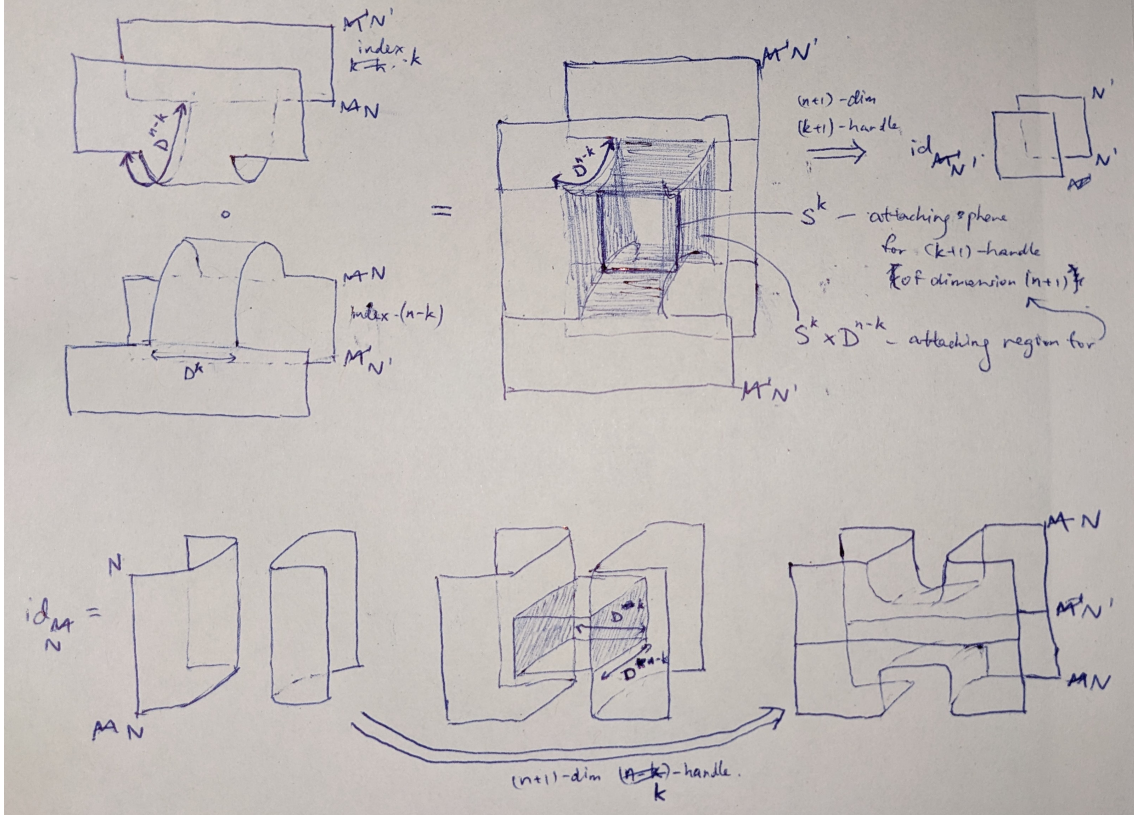 M'N'
index
k
MN
D^{n-k}
∘
MN
index-(n-k)
M'N'
D^k
=
M'N'
D^{n-k}
M'N'
(n+1)-dim
(k+1)-handle
⇒
id_{M'N'}
N'
N'
S^k — attaching sphere
for (k+1)-handle
(of dimension (n+1))
S^k × D^{n-k} — attaching region for
N
id_{MN} =
MN
D^k
D^{n-k}
MN
M'N'
MN
(n+1)-dim (n-k)-handle.
k